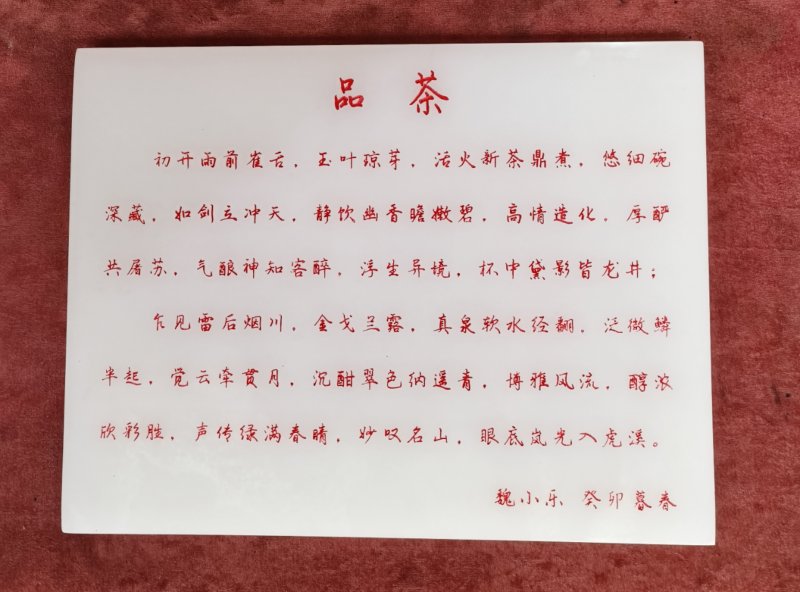 品 茶
初开雨前雀舌，玉叶琼芽，活火新茶鼎煮，悠细碗
深藏，如剑立冲天，静饮幽香瞻嫩碧，高情造化，厚酽
共屠苏，气酿神知客醉，浮生异境，杯中黛影皆龙井；
乍见雷后烟川，金戈兰露，真泉软水经翻，泛微鳞
半起，觉云牵贯月，沉酣翠色纳遥青，博雅风流，醇浓
欣彩胜，声传绿满春晴，妙叹名山，眼底岚光入虎溪。
魏小乐 癸卯暮春